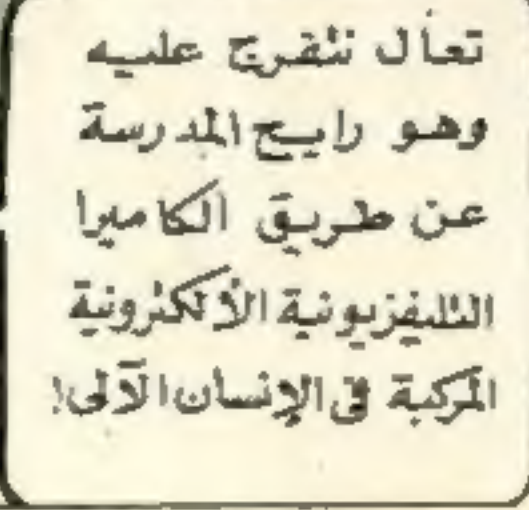 تعال نتفرج عليه
وهو رايح المدرسة
عن طريق الكاميرا
التليفزيونية الألكترونية
المركبة فى الإنسان الآلى!